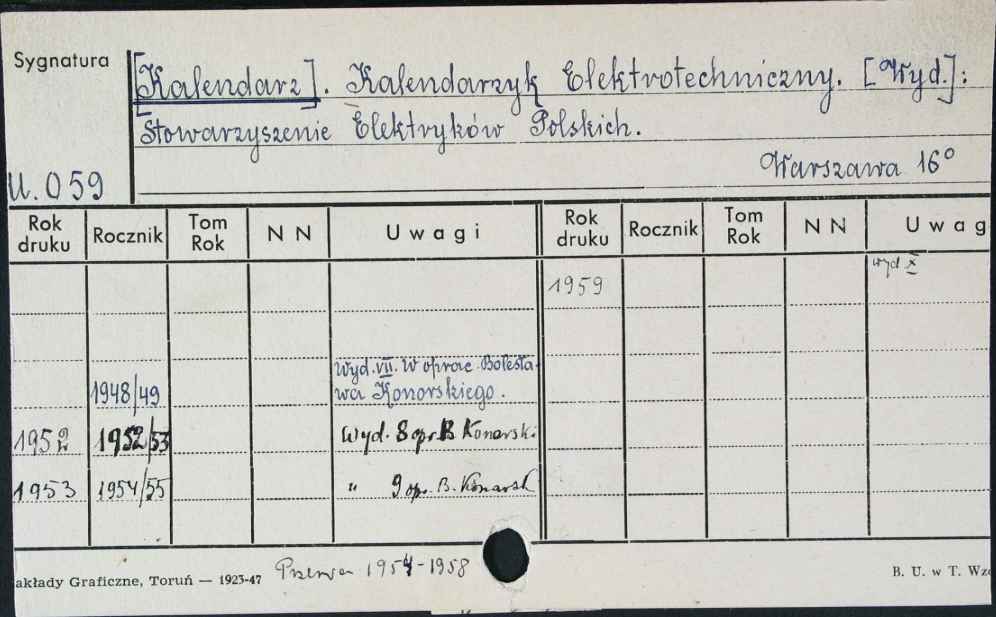 Sygnatura
[Kalendarz]. Kalendarzyk Elektrotechniczny. [Wyd.]:
Stowarzyszenie Elektryków Polskich.
Warszawa 16°
U. 059
Rok druku Rocznik Tom Rok N N Uwagi Rok druku Rocznik Tom Rok N N Uwag
1959 wyd X
Wyd. VII. W oprac. Bolesła-
1948/49 wa Konorskiego.
1952 1952/53 Wyd. 8 opr. B Konorski
1953 1954/55 " 9 opr. B. Konorsk
Przerwa 1954-1958
akłady Graficzne, Toruń — 1923-47 B. U. w T. Wzo